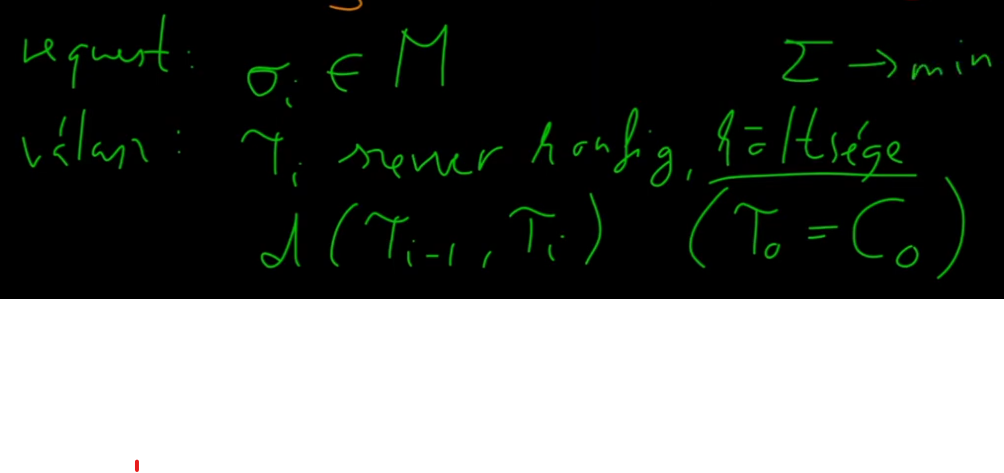 request: σᵢ ∈ M Σ → min
válasz: τᵢ szerver konfig, költsége
d(τᵢ₋₁, τᵢ) (τ₀ = C₀)